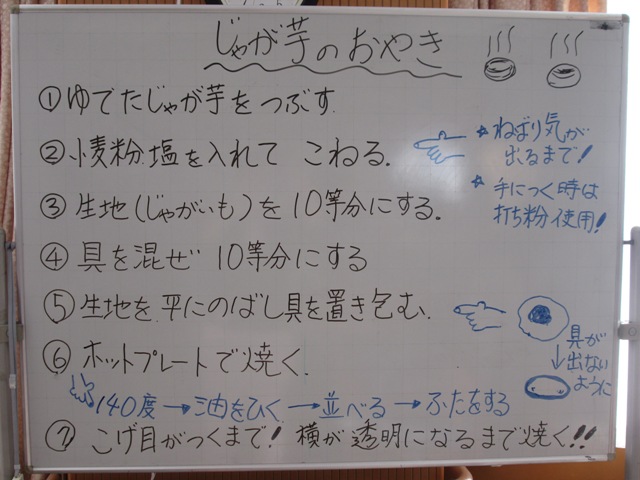 じゃが芋のおやき
①ゆでたじゃが芋をつぶす
②小麦粉、塩を入れて こねる。
★ねばり気が
出るまで!
③生地(じゃがいも)を10等分にする。
★手につく時は
打ち粉使用!
④具を混ぜ 10等分にする
⑤生地を平にのばし具を置き包む。
具が
出ない
ように
⑥ホットプレートで焼く。
140度→油をひく→並べる→ふたをする
⑦こげ目がつくまで! 横が透明になるまで焼く!!